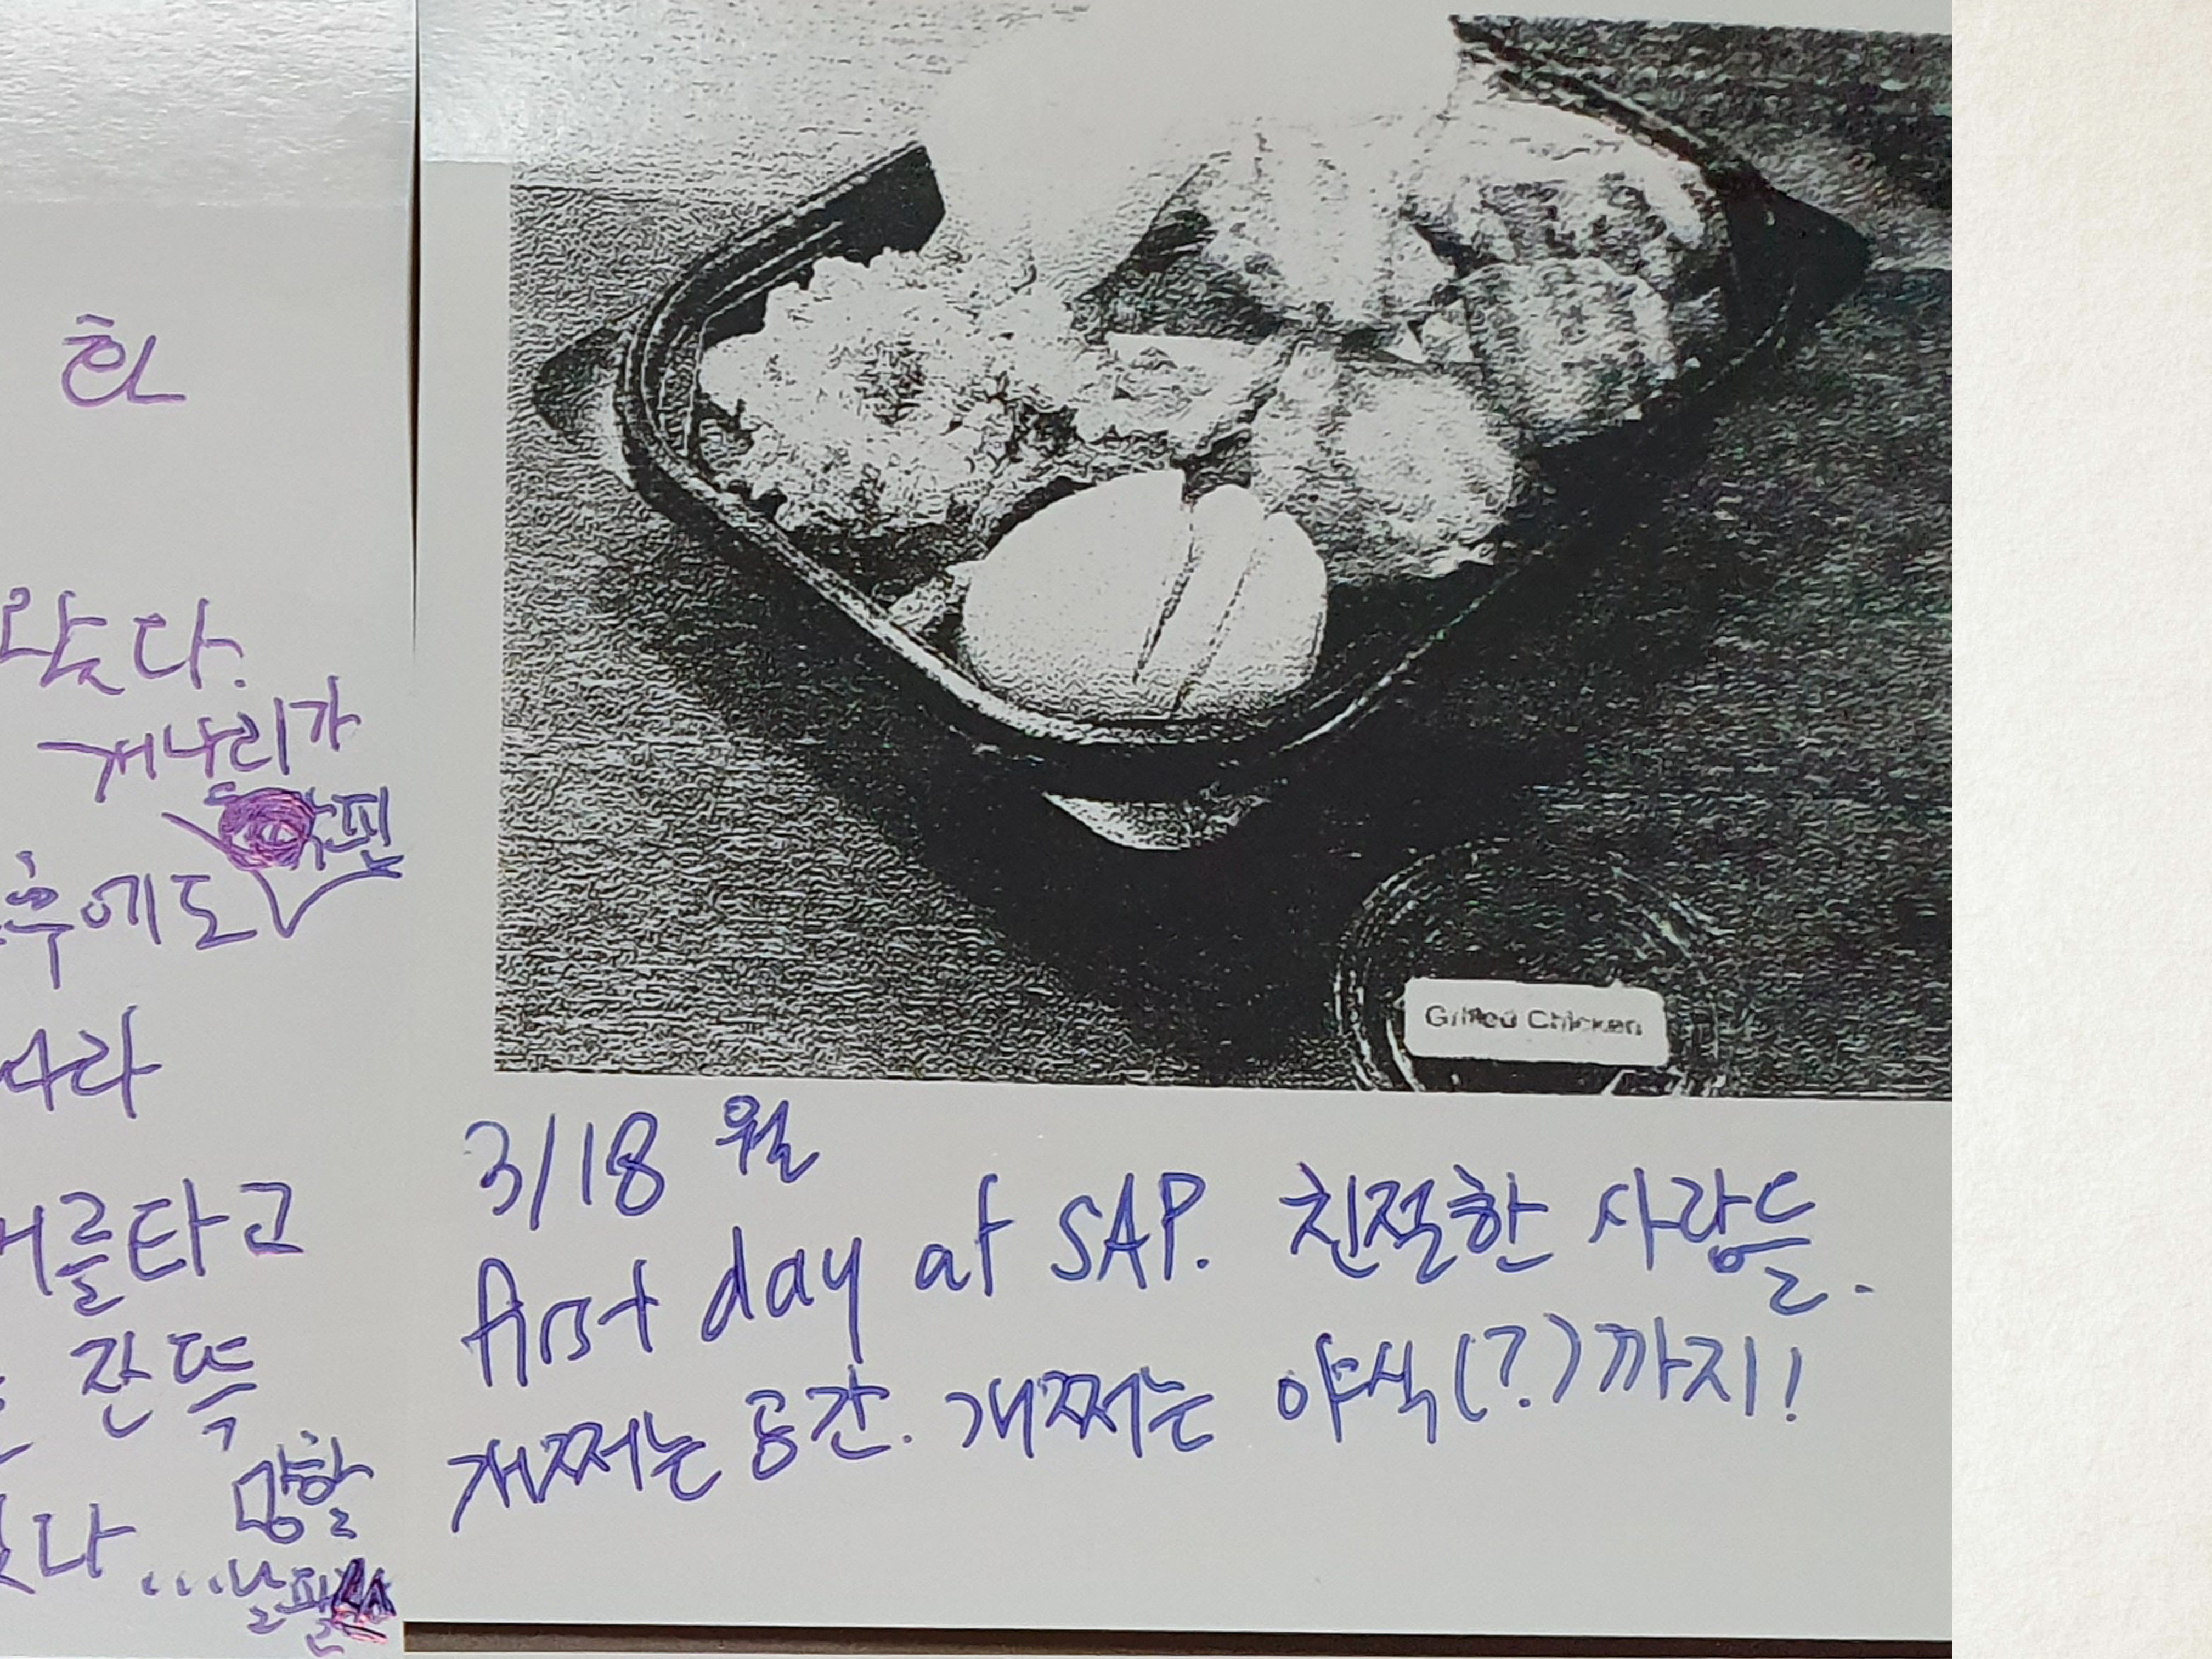 한
았다.
개나리가
후에도
나라
를타고
잔뜩
망할
Grilled Chicken
3/18 월
first day at SAP. 친절한 사람들.
개쩌는 공간. 개쩌는 야식(?)까지!